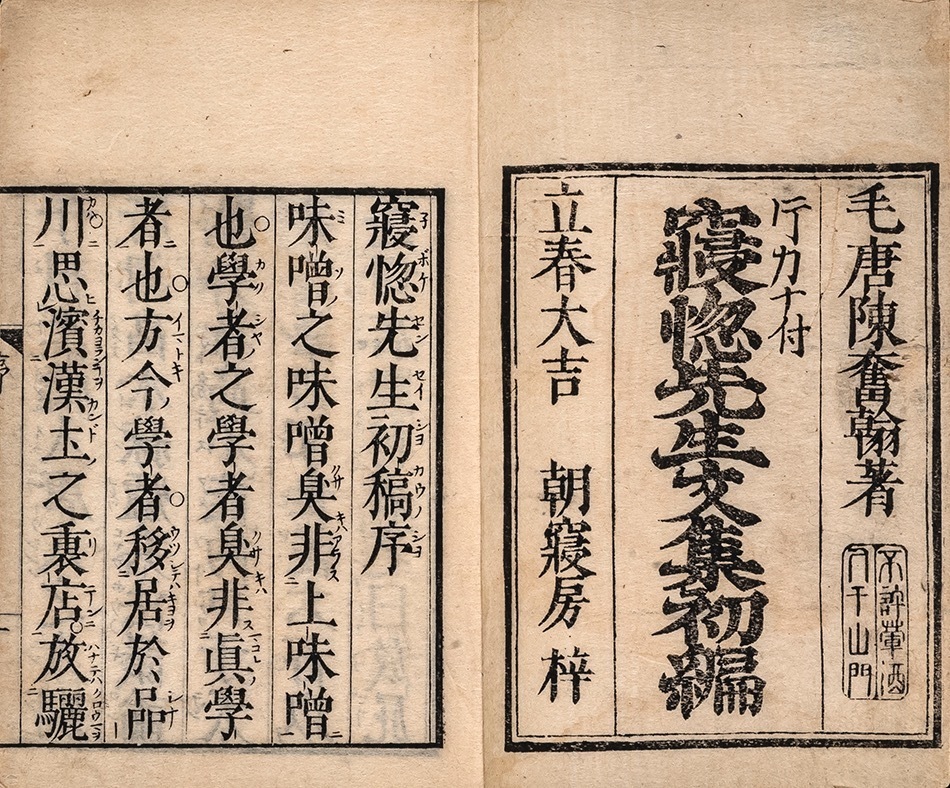 毛唐陳奮翰著
不許葷酒
入于山門
片カナ付
寢惚先生文集初編
立春大吉 朝寢房 梓
寢惚先生初稿序
味噌之味噌臭非上味噌
也○學者之學者臭非眞學
者也○方今學者○移居於品
川○思濱漢土之裏店○放驪